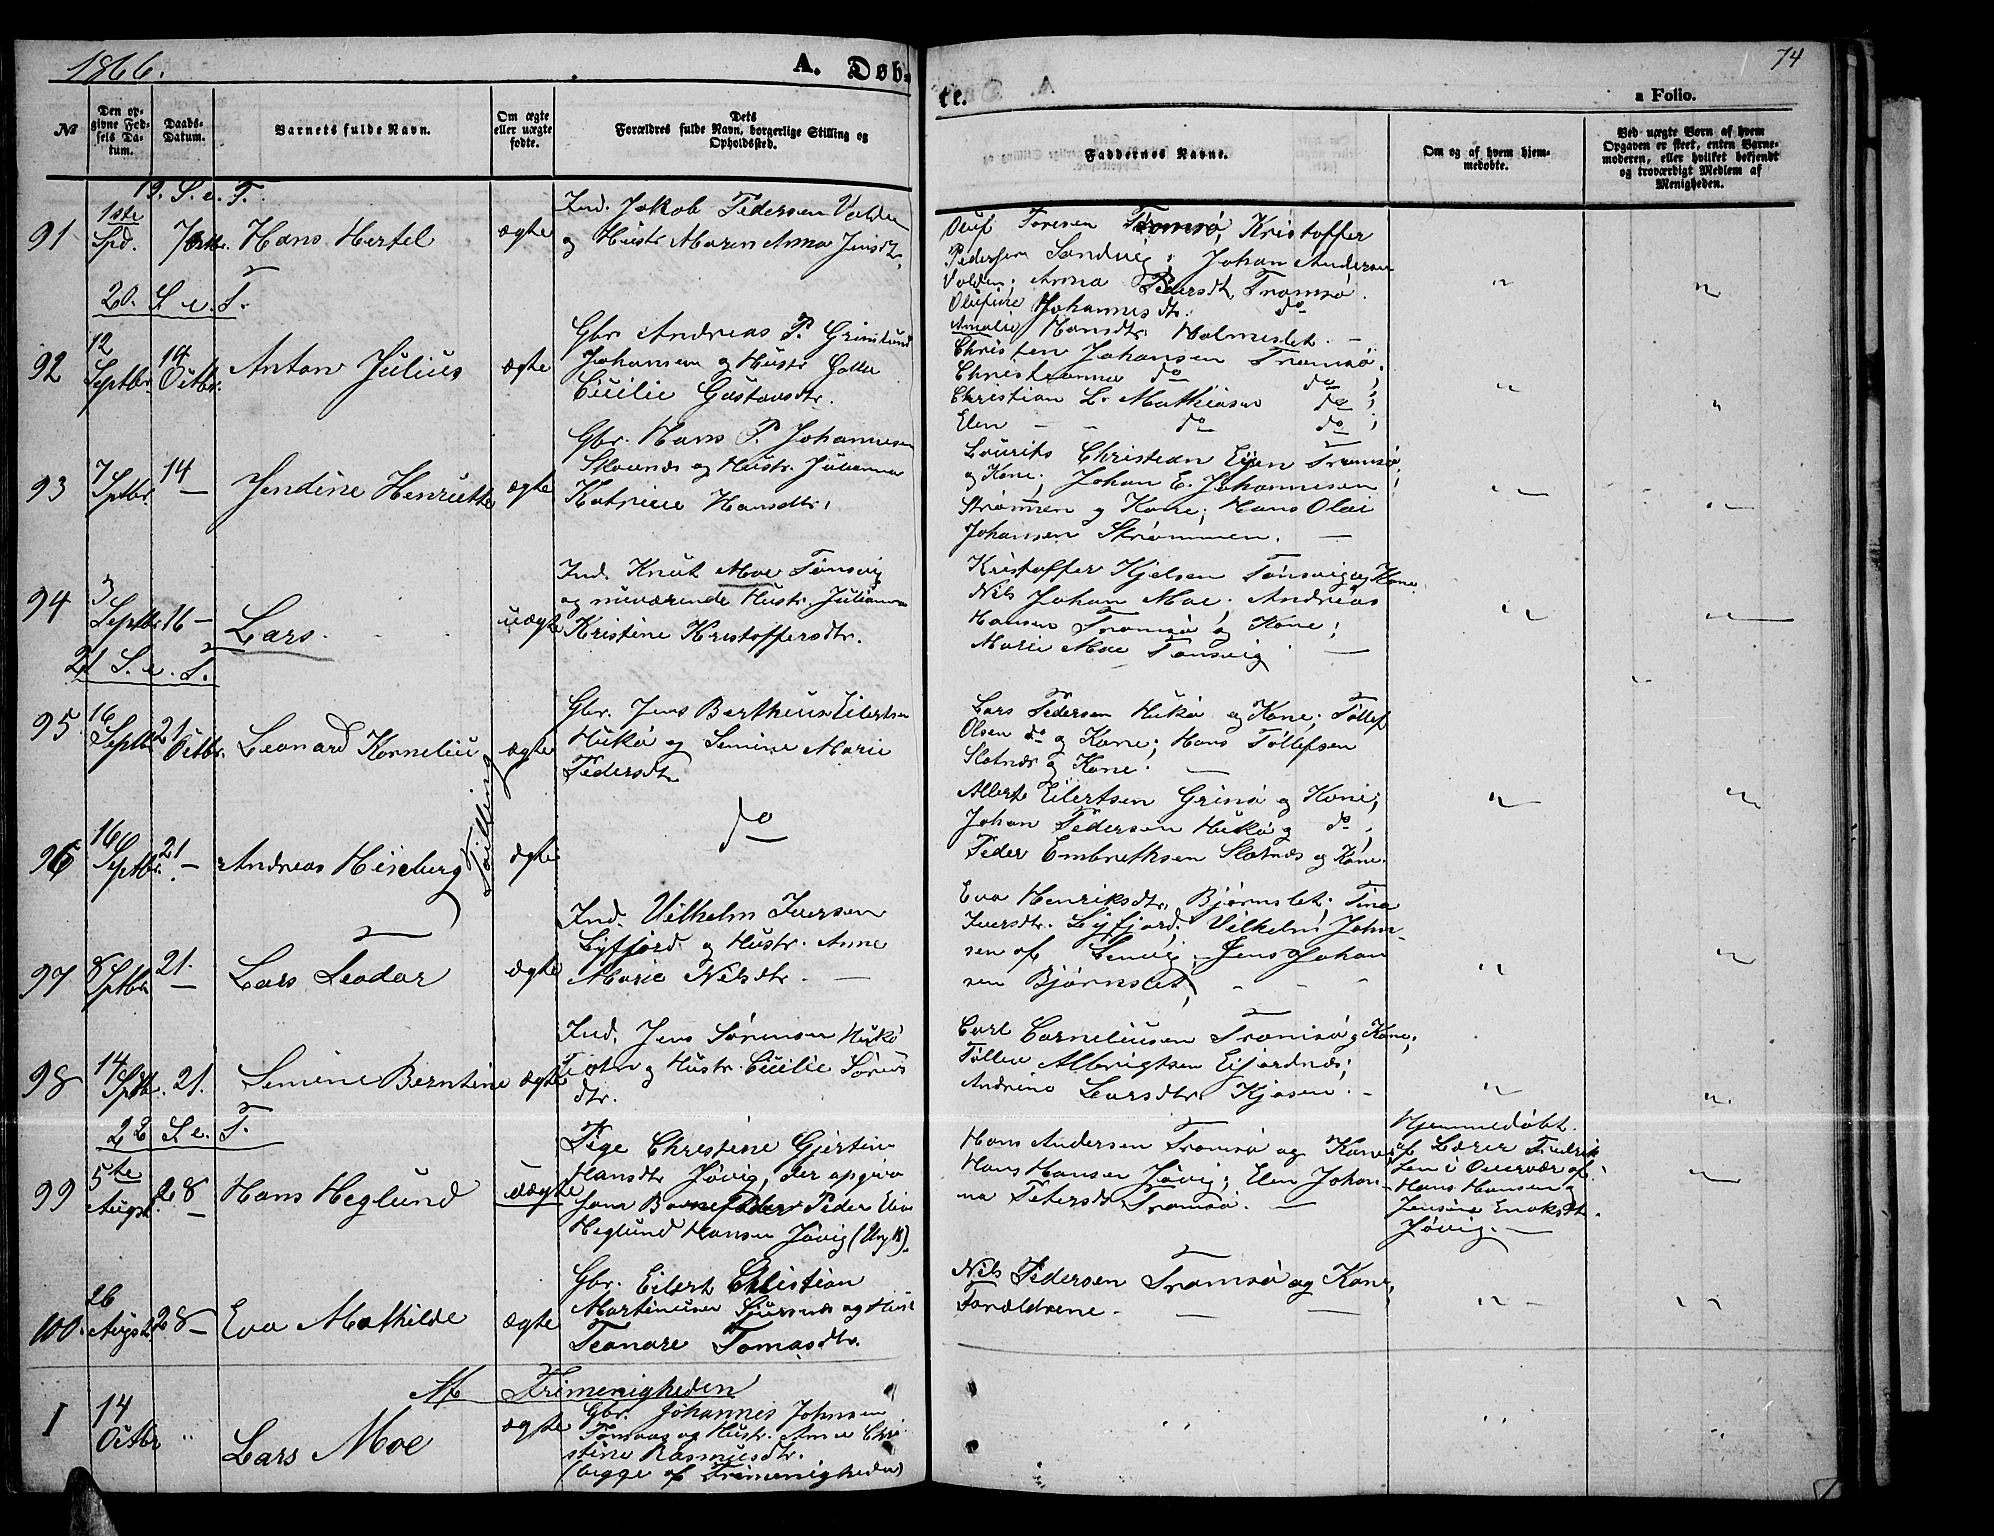 1866.
A. Døb-
te.
74
a Folio.
№
Den op-
givne Fød-
sels Da-
tum.
Daabs-
Datum.
Barnets fulde Navn.
Om ægte
eller uægte
fødte.
Dets
Forældres fulde Navn, borgerlige Stilling og
Opholdssted.
Faddernes Navne.
Om og af hvem hjem-
medøbte.
Ved uægte Børn af hvem
Opgaven er skeet, enten Barne-
moderen, eller hvilket bekjendt
og troværdigt Medlem af
Menigheden.
19. S. e. T.
91
1ste
7 Oktbr.
Hans Hertel
ægte
Ind. Jakob Pedersen
og Hustr. Maren Anna Jensdtr.
Oluf Tromsø, Kristoffer
Pedersen Sandvig; Johan Andersen
Anna Pedersdtr. Tromsø.
Olufine Johannesdtr. do
Amalie Hansdtr. Holmeslet. —
20. S. e. T.
92
12
Septbr.
14
Octbr.
Anton Julius
ægte
Gbr. Andreas P. Grindlund
Johansen og Hustr.
Cicilie Gustavsdtr.
Christen Johansen Tromsø.
Christianna do do;
Christian L. Mathiasen do;
Elen — do do;
93
7
Septbr.
14
—
Jendine Henriette
ægte
Gbr. Hans P. Johannesen
og Hustr. Julianna
Katrine Hansdtr.
Lourits Christian Tromsø
og Kone; Johan E. Johannesen
Strømmen og Kone; Hans Olai
Johansen Strømmen. —
94
3
Septbr.
16 —
Lars.
uægte
Ind. Knut Moe Tønsvig
og nuværende Hustr. Julianna
Kristine Kristoffersdtr.
Kristoffer Kjelsen Tønsvig og Kone
Nils Johan Moe; Andreas
Hansen Tromsø og Kone;
Marie Moe Tønsvig —
21 S. e. T.
95
16
Septbr.
21
Octbr.
Leonard Kornelius
ægte
Tvilling
Gbr. Jens Bertheus Eilertsen
og Semine Marie
Pedersdtr.
Lars Pedersen og Kone; Tollef
Olsen do og Kone; Hans Tollefsen
Slotnæs og Kone.
96
16
Septbr.
21
—
Andreas Heieberg
ægte
do
Albert Eilertsen Grinø og Kone;
Johan Pedersen do;
Peder Embrethsen Slotnæs og Kone.
97
8
Septbr.
21.
—
Lars Leodor
ægte
Ind. Vilhelm Iversen
Lyfjord og Hustr. Anne
Marie Nilsdtr. —
Eva Henriksdtr. Bjørnslet; Tina
Iversdtr. Lyfjord; Vilhelm John-
sen af Lenvig; Jens Johan
sen Bjørnslet;
98
14
Septbr.
21.
Semine Berntine
ægte
Ind. Jens Sørensen
og Hustr. Cicilie Sørens
dtr.
Carl Corneliusen Tromsø og Kone;
Albrigtsen Ejordnæs;
Andrine Larsdtr. Kjosen. —
22 S. e. T.
99
5te
Augst.
28
—
Hans Heglund
uægte
Pige Christine Gjertine
Hansdtr. Jøvig, der opgiver
som Barnefader Peder Elias
Heglund Hansen Jøvig (Ungk).
Hans Andersen Tromsø og Kone;
Hans Hansen Jøvig; Elen Johan-
na Petersdtr. Tromsø. —
Hjemmedøbt
af Lærer Fredrik-
sen i Overvær af
Hans Hansen og
Jensine Enoksdtr.
Jøvig. —
100.
26
Augst.
28 —
Eva Mathilde
ægte
Gbr. Eilert Christian
Martinusen og Hust
Leonore Tomasdtr.
Nils Pedersen Tromsø og Kone,
Forældrene. —
Af Frimenigheden
I
14
Octbr.
Lars Moe
ægte
Gbr. Johannes Johnsen
og Hustr. Anne Chri-
stine Rasmusdtr.
(begge af Frimenigheden)